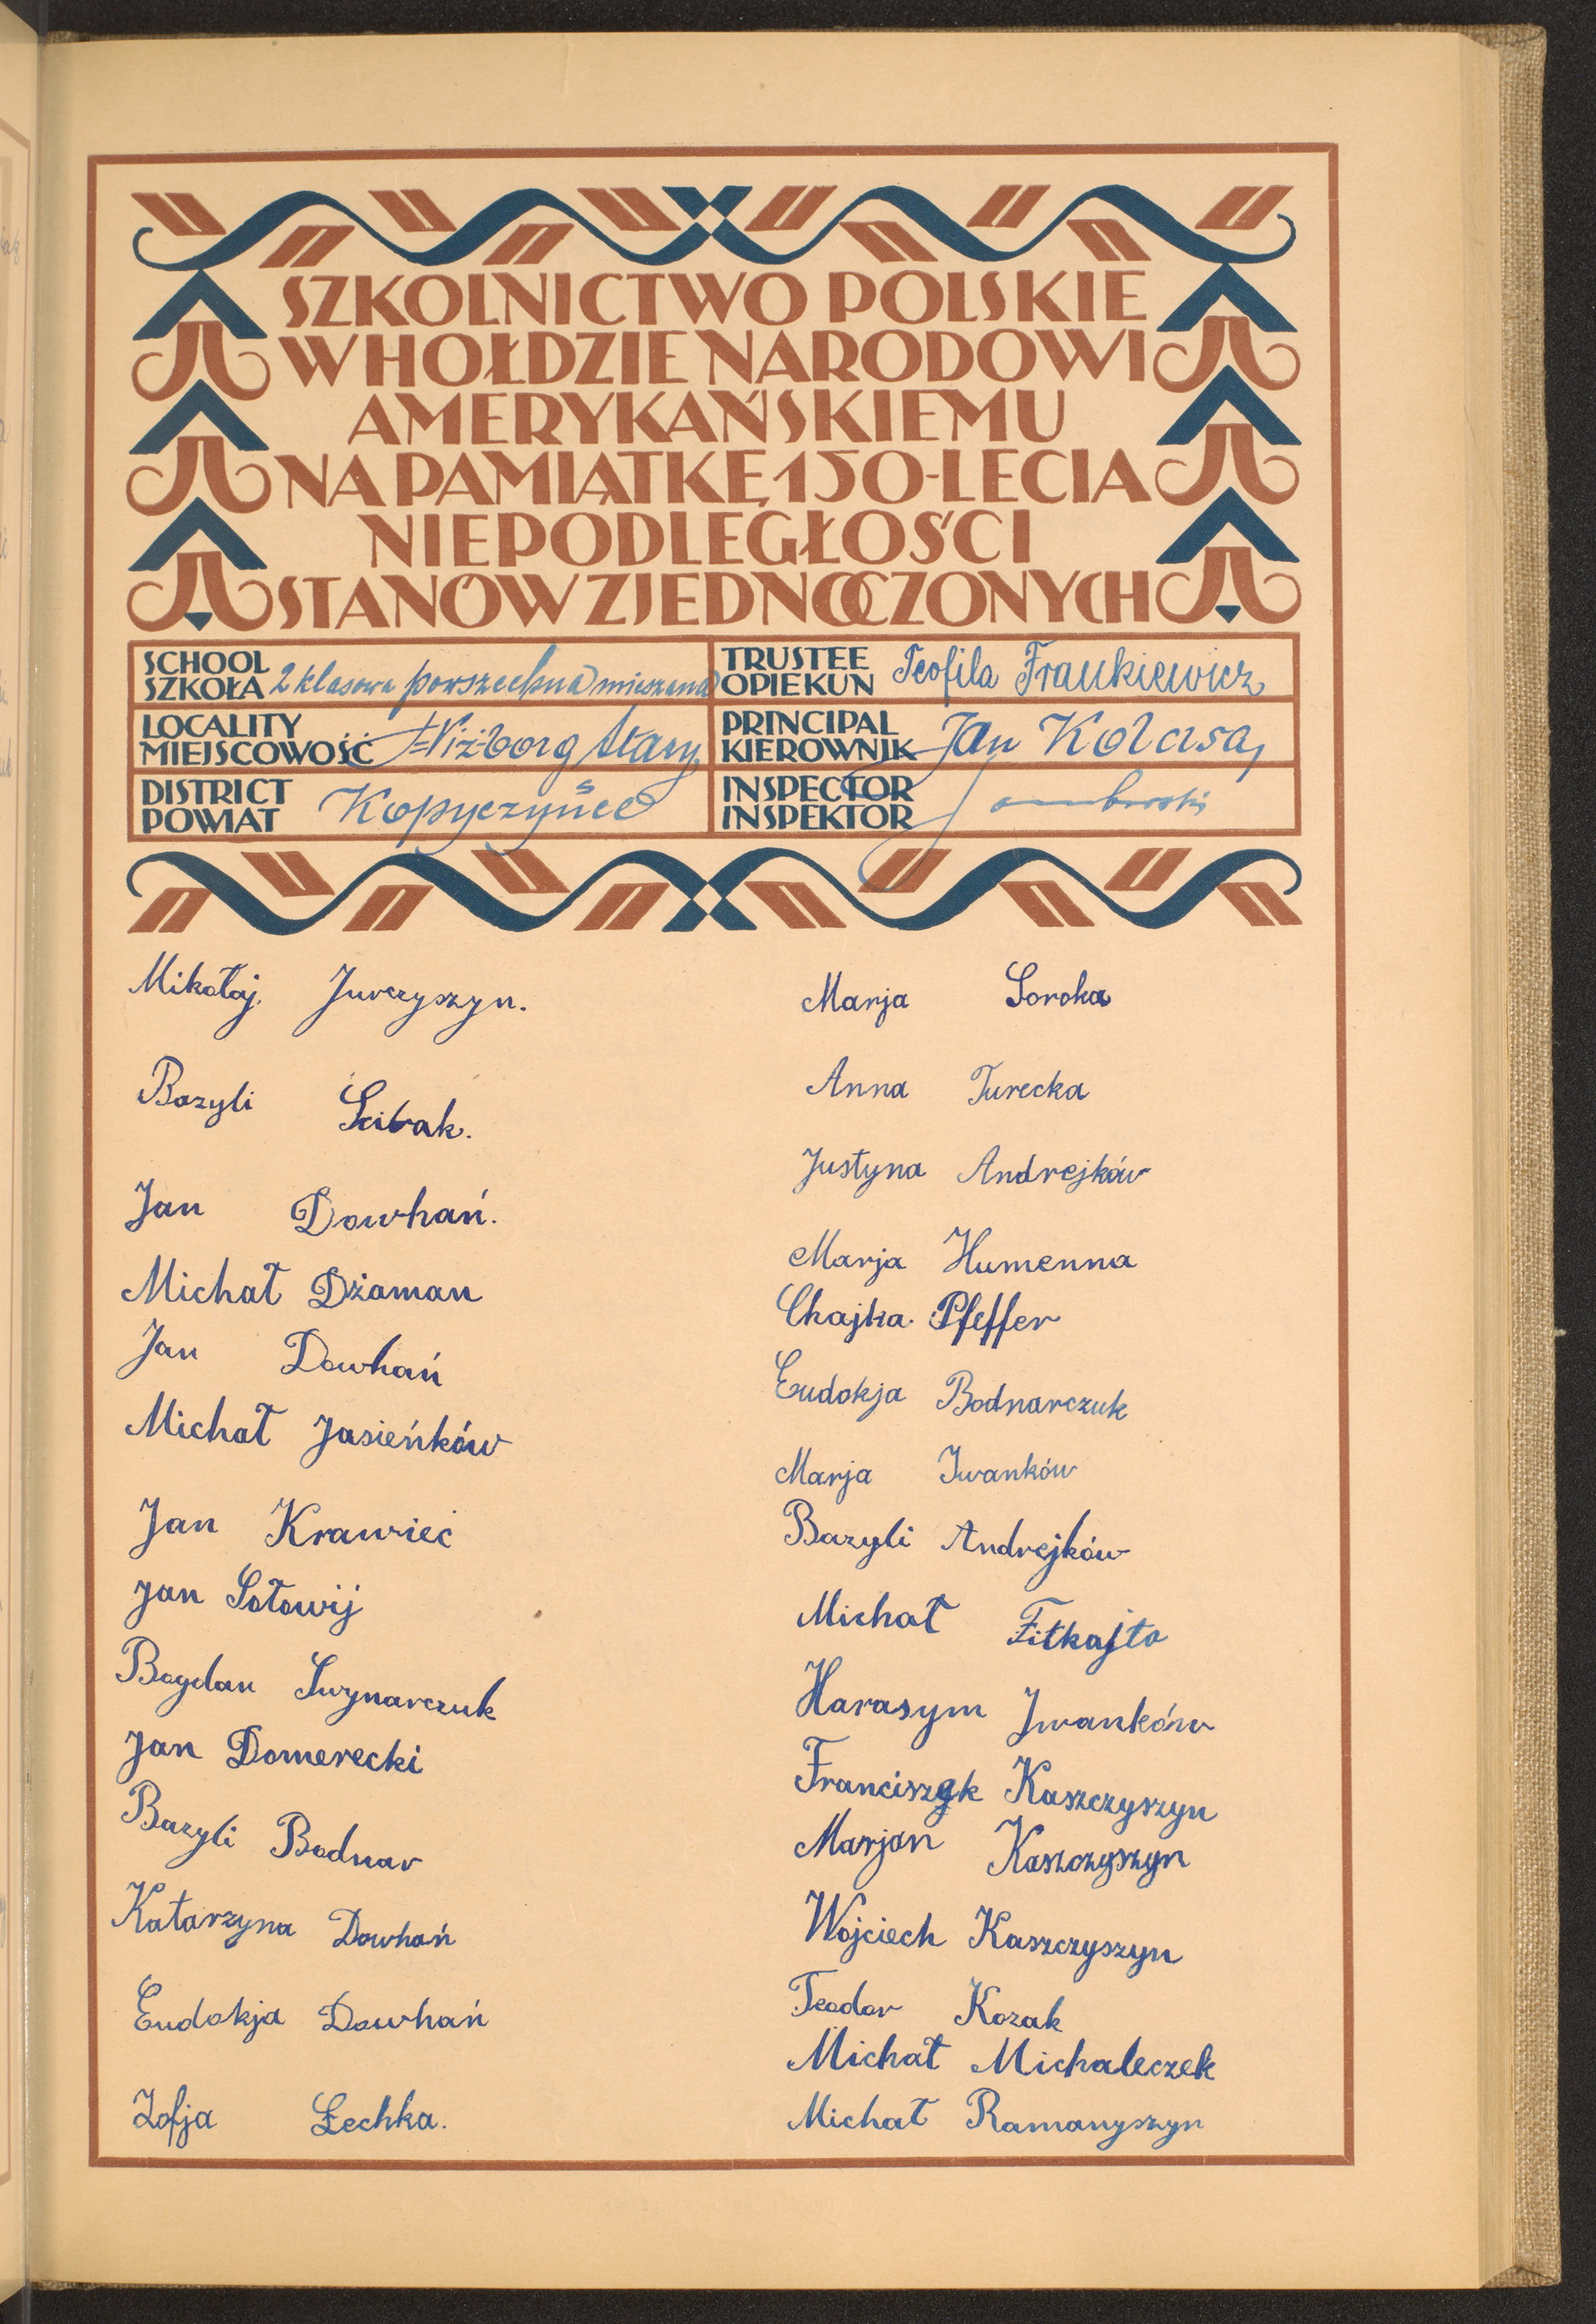 SZKOLNICTWO POLSKIE
W HOŁDZIE NARODOWI
AMERYKAŃSKIEMU
NA PAMIĄTKĘ 150-LECIA
NIEPODLEGŁOŚCI
STANÓW ZJEDNOCZONYCH
SCHOOL
SZKOŁA 2 klasowa powszechna mieszana
TRUSTEE
OPIEKUN Teofila Frankiewicz
LOCALITY
MIEJSCOWOŚĆ Niżborg Stary
PRINCIPAL
KIEROWNIK Jan Kolasa
DISTRICT
POWIAT Kopyczyńce
INSPECTOR
INSPEKTOR
Mikołaj Jurczyszyn.
Bazyli Scibak.
Jan Dowhań.
Michał Dżaman
Jan Dowhań
Michał Jasieńków
Jan Krawieć
Jan Sołowij
Bogdan Swynarczuk
Jan Domerecki
Bazyli Bodnar
Katarzyna Dowhań
Eudokja Dowhań
Zofja Łechka.
Marja Soroka
Anna Turecka
Justyna Andrejków
Marja Humenna
Chajka Pfeffer
Eudokja Bodnarczuk
Marja Iwanków
Bazyli Andrejków
Michał Fitkajło
Harasym Iwanków
Franciszek Kaszczyszyn
Marjan Kaszczyszyn
Wojciech Kaszczyszyn
Teodor Kozak
Michał Michaleczek
Michał Ramanyszyn